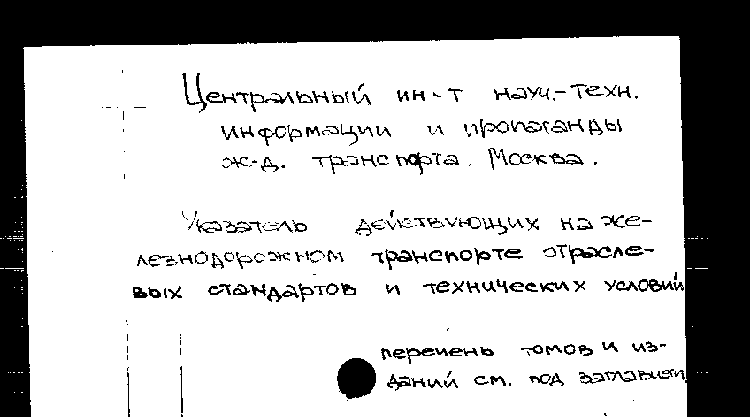 Центральный ин-т науч.-техн.
информации и пропаганды
ж-д. транспорта. Москва.
Указатель действующих на же-
лезнодорожном транспорте отрасле-
вых стандартов и технических условий
перечень томов и из-
даний см. под заглавием